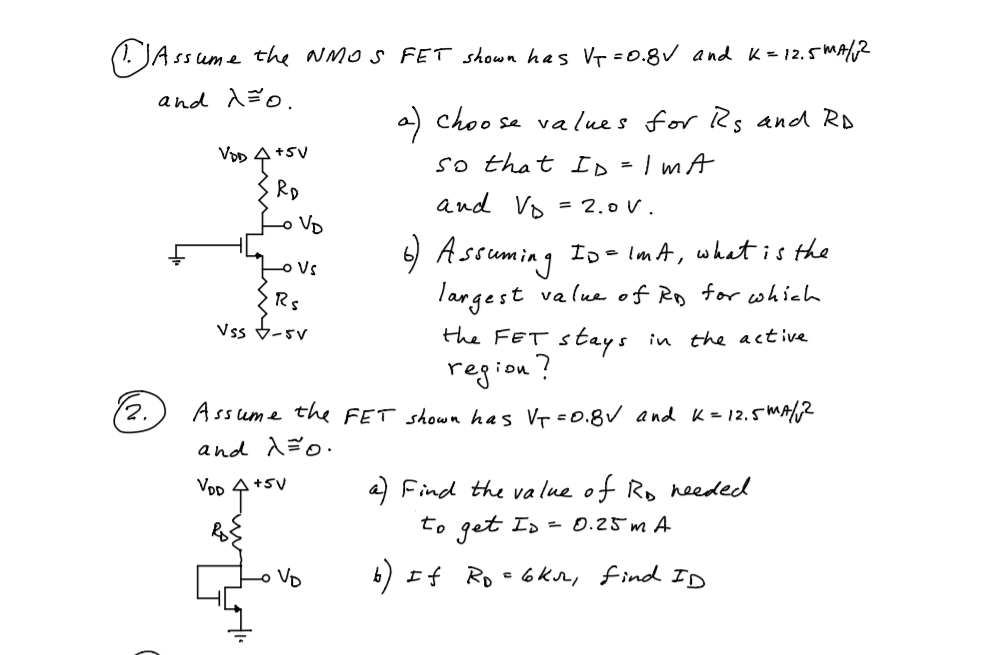 1. Assume the NMOS FET shown has VT = 0.8V and K = 12.5 mA/V2
and λ ≅ 0.
a) choose values for Rs and RD
so that ID = 1 mA
and VD = 2.0 V.
VDD +5V
RD
VD
Vs
Rs
Vss -5V
b) Assuming ID = 1mA, what is the
largest value of RD for which
the FET stays in the active
region?
2. Assume the FET shown has VT = 0.8V and K = 12.5 mA/V2
and λ ≅ 0.
VDD +5V
RD
VD
a) Find the value of RD needed
to get ID = 0.25 mA
b) If RD = 6kΩ, find ID